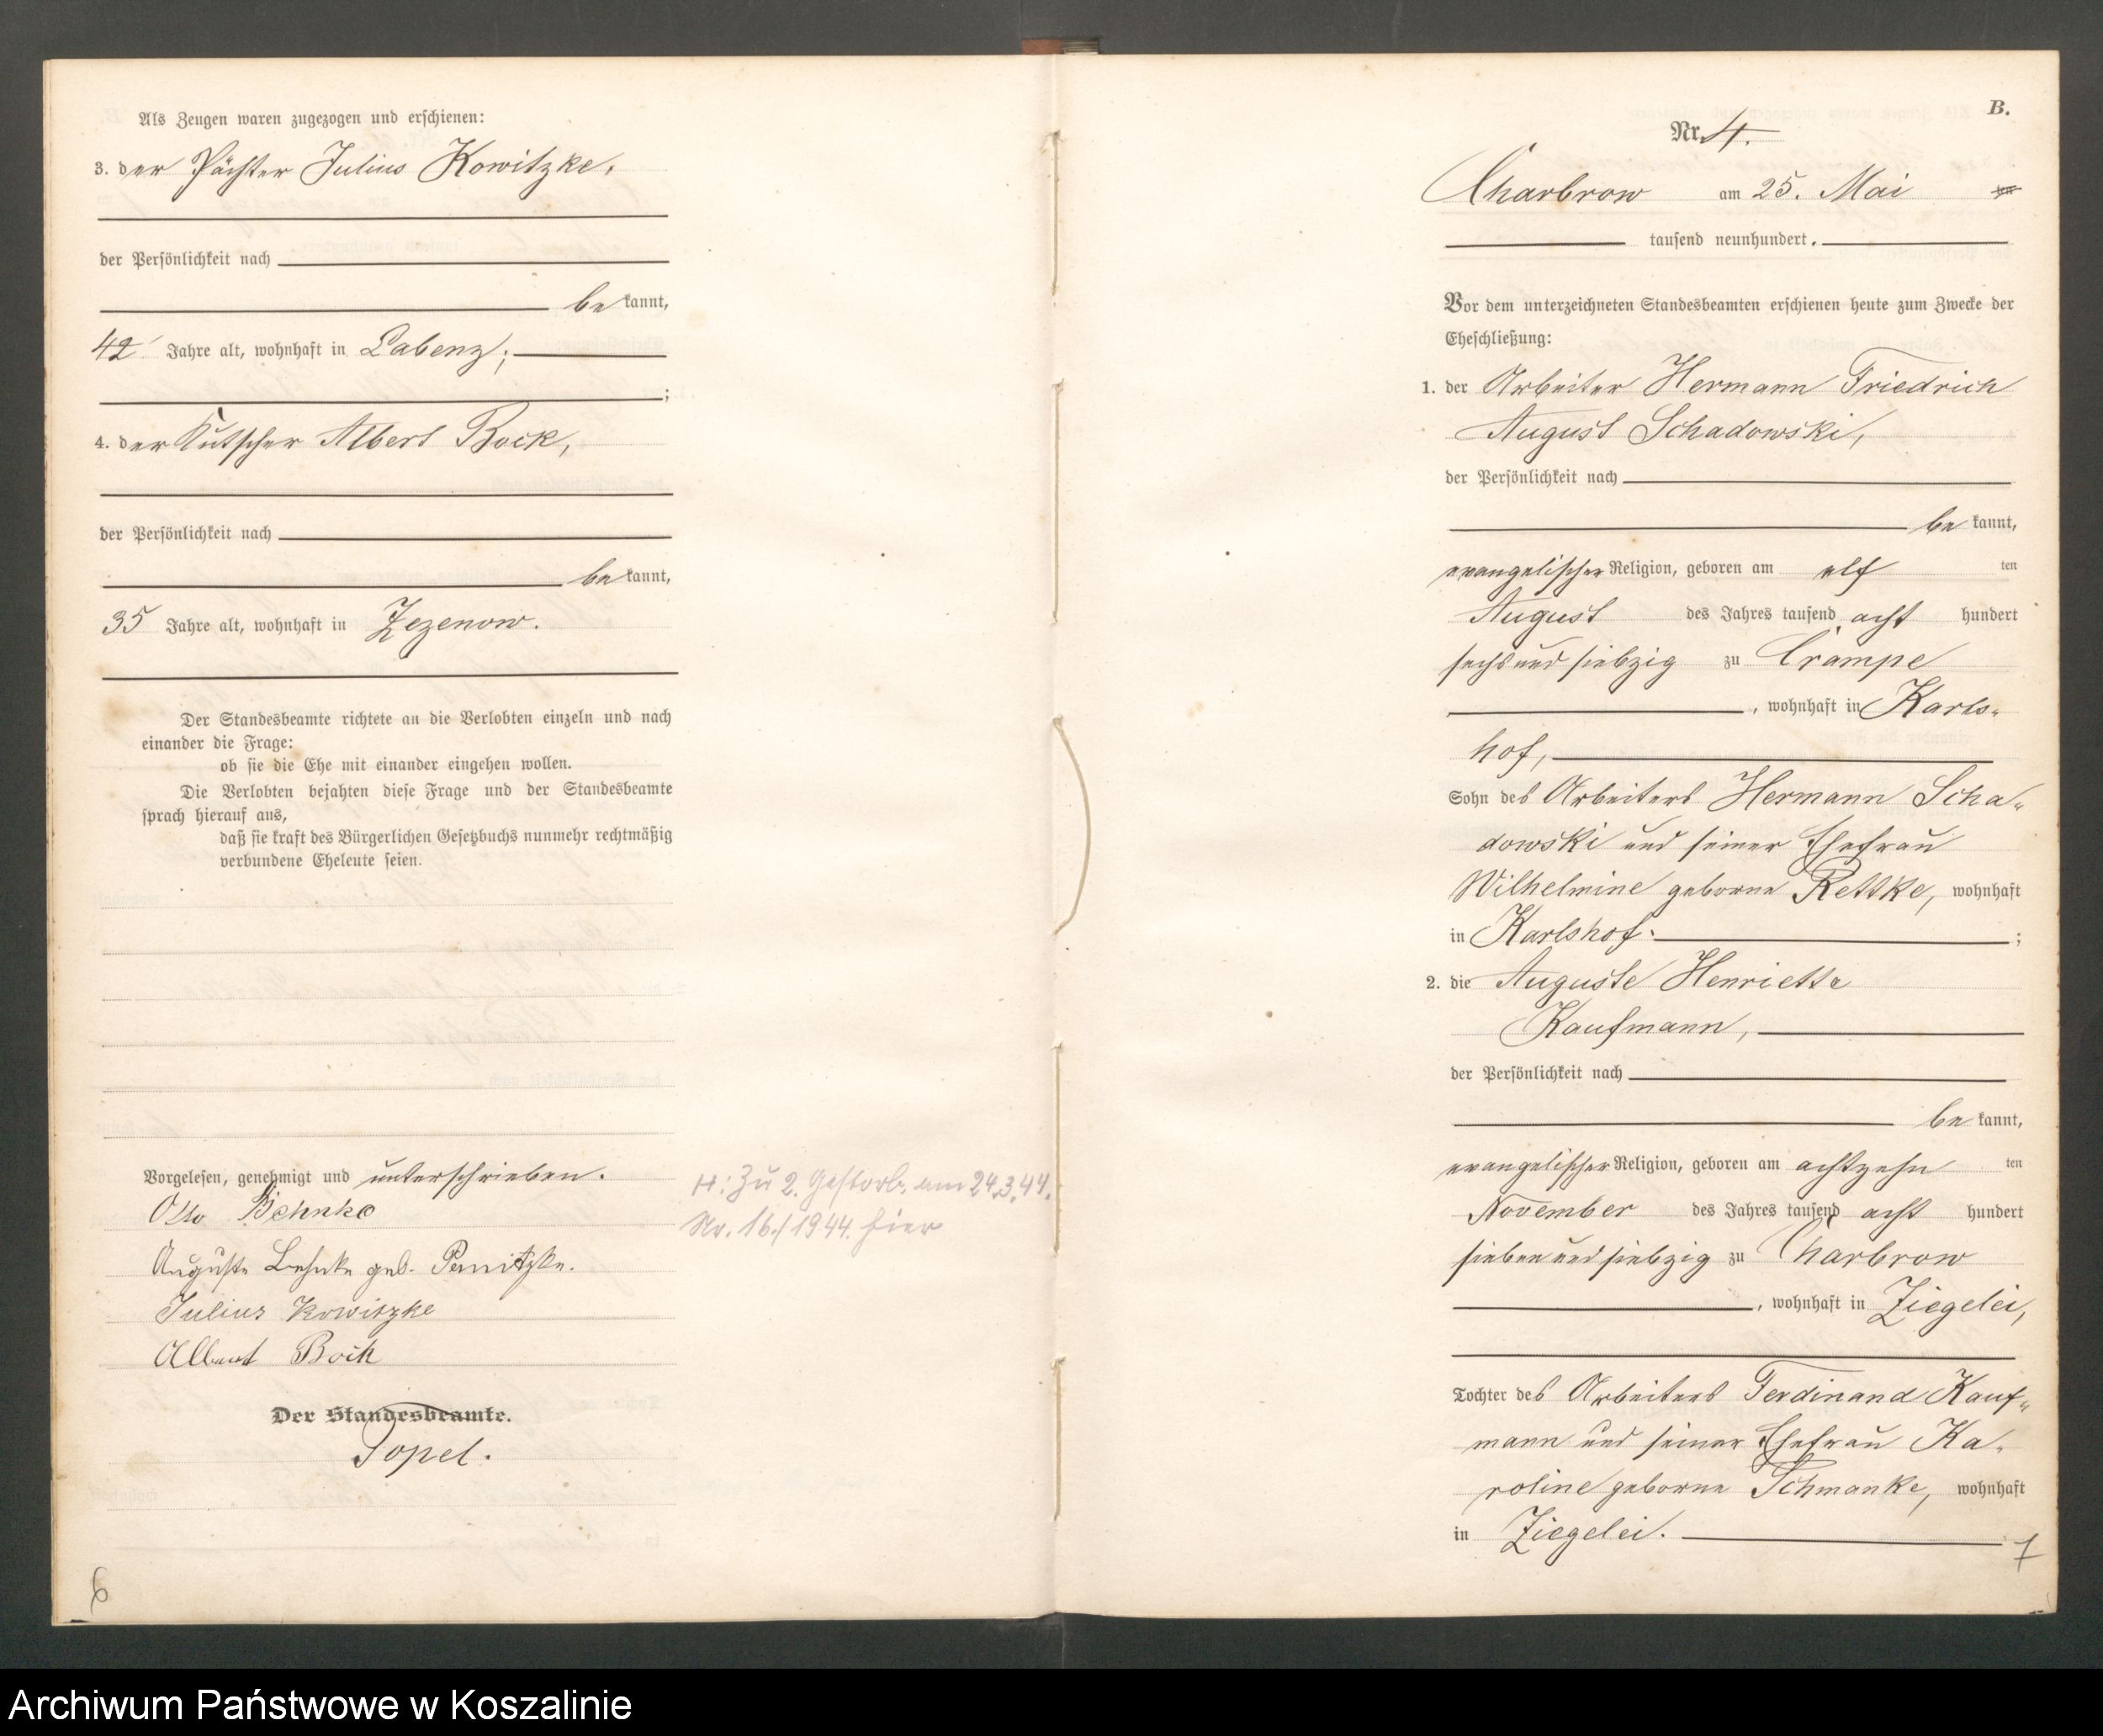 Als Zeugen waren zugezogen und erschienen:
3. der Pächter Julius Kowitzke,
der Persönlichkeit nach
be kannt,
42 Jahre alt, wohnhaft in Labenz;
;
4. der Kutscher Albert Bock,
der Persönlichkeit nach
be kannt,
35 Jahre alt, wohnhaft in Zezenow.
Der Standesbeamte richtete an die Verlobten einzeln und nach
einander die Frage:
ob sie die Ehe mit einander eingehen wollen.
Die Verlobten bejahten diese Frage und der Standesbeamte
sprach hierauf aus,
daß sie kraft des Bürgerlichen Gesetzbuchs nunmehr rechtmäßig
verbundene Eheleute seien.
Vorgelesen, genehmigt und unterschrieben.
Otto Behnke
Auguste Behnke geb.
Julius Kowitzke
Albert Bock
Der Standesbeamte.
Popel.
H: Zu 2. Gestorb. am 24.3.44.
Nr. 16./1944. hier
6
B.
Nr. 4.
Charbrow am 25. Mai
tausend neunhundert.
Vor dem unterzeichneten Standesbeamten erschienen heute zum Zwecke der
Eheschließung:
1. der Arbeiter Hermann Friedrich
August Schadowski,
der Persönlichkeit nach
be kannt,
evangelischer Religion, geboren am elf ten
August des Jahres tausend acht hundert
sechs und siebzig zu Crampe
, wohnhaft in Karls-
hof,
Sohn des Arbeiters Hermann Scha-
dowski und seiner Ehefrau
Wilhelmine geborne Rettke, wohnhaft
in Karlshof. ;
2. die Auguste Henriette
Kaufmann,
der Persönlichkeit nach
be kannt,
evangelischer Religion, geboren am achtzehn ten
November des Jahres tausend acht hundert
sieben und siebzig zu Charbrow
, wohnhaft in Ziegelei,
Tochter des Arbeiters Ferdinand Kauf-
mann und seiner Ehefrau Ka-
roline geborne Schmanke, wohnhaft
in Ziegelei.
7
Archiwum Państwowe w Koszalinie